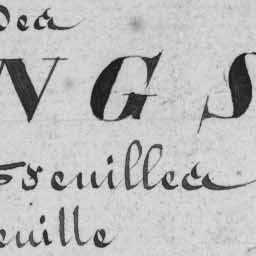 Des
NGS
Feuilles
euille